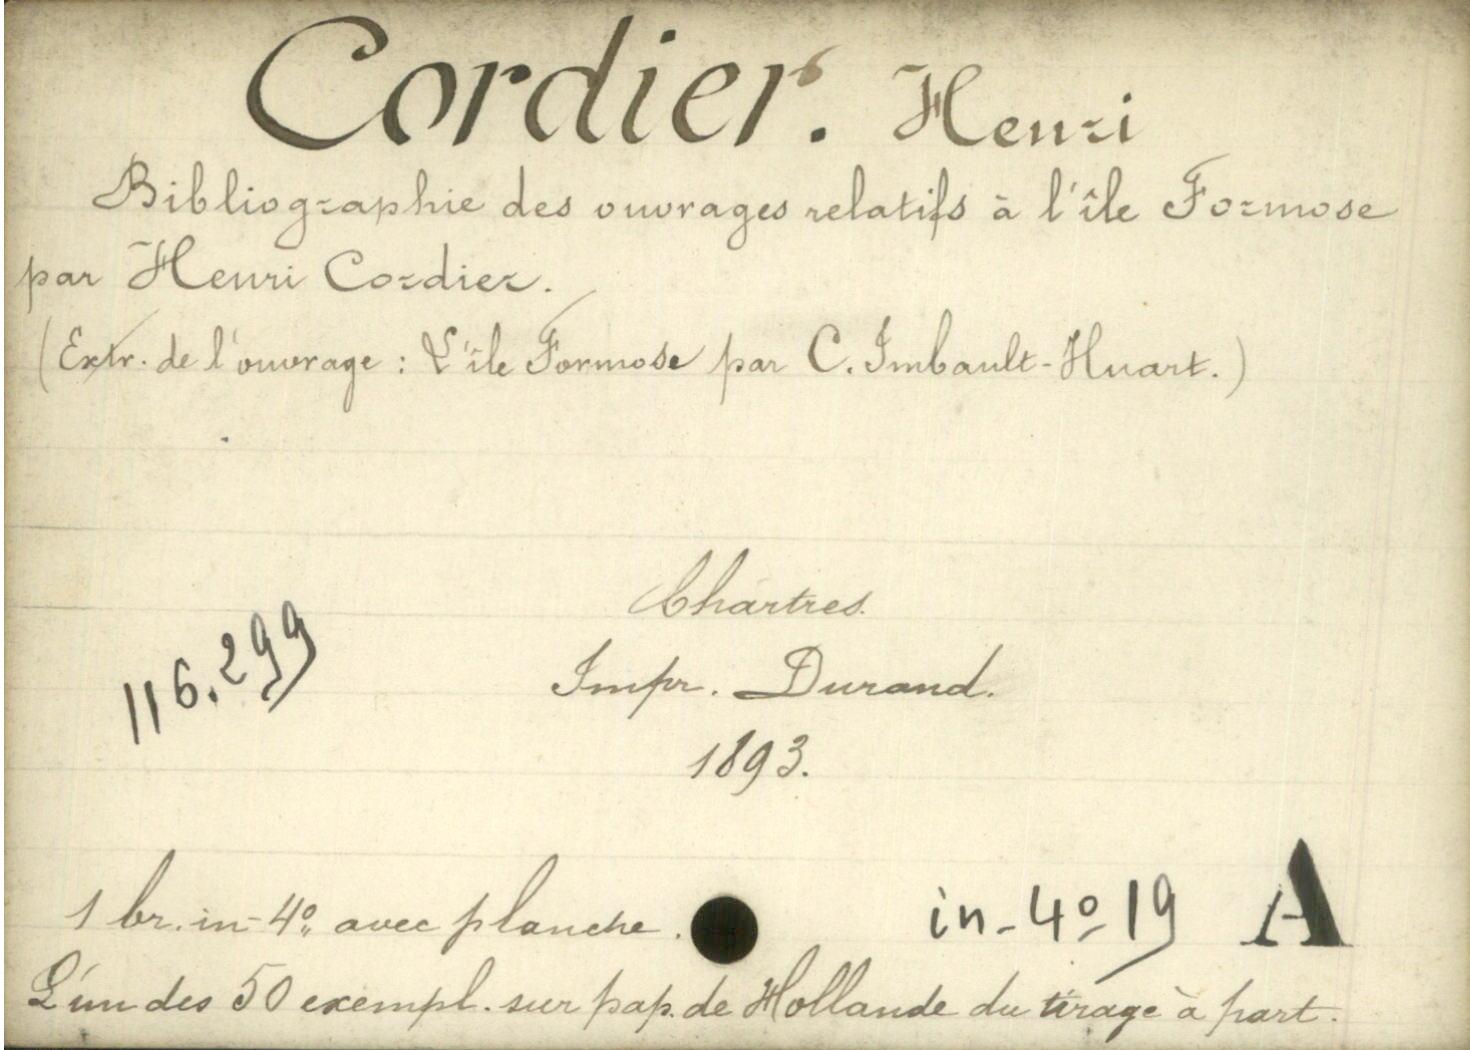 Cordier. Henri
Bibliographie des ouvrages relatifs à l'île Formose
par Henri Cordier.
(Extr. de l'ouvrage : L'île Formose par C. Imbault-Huart.)
Chartres.
116.299
Impr. Durand.
1893.
1 br. in-4º, avec planche.
in-4º 19 A
L'un des 50 exempl. sur pap. de Hollande du tirage à part.